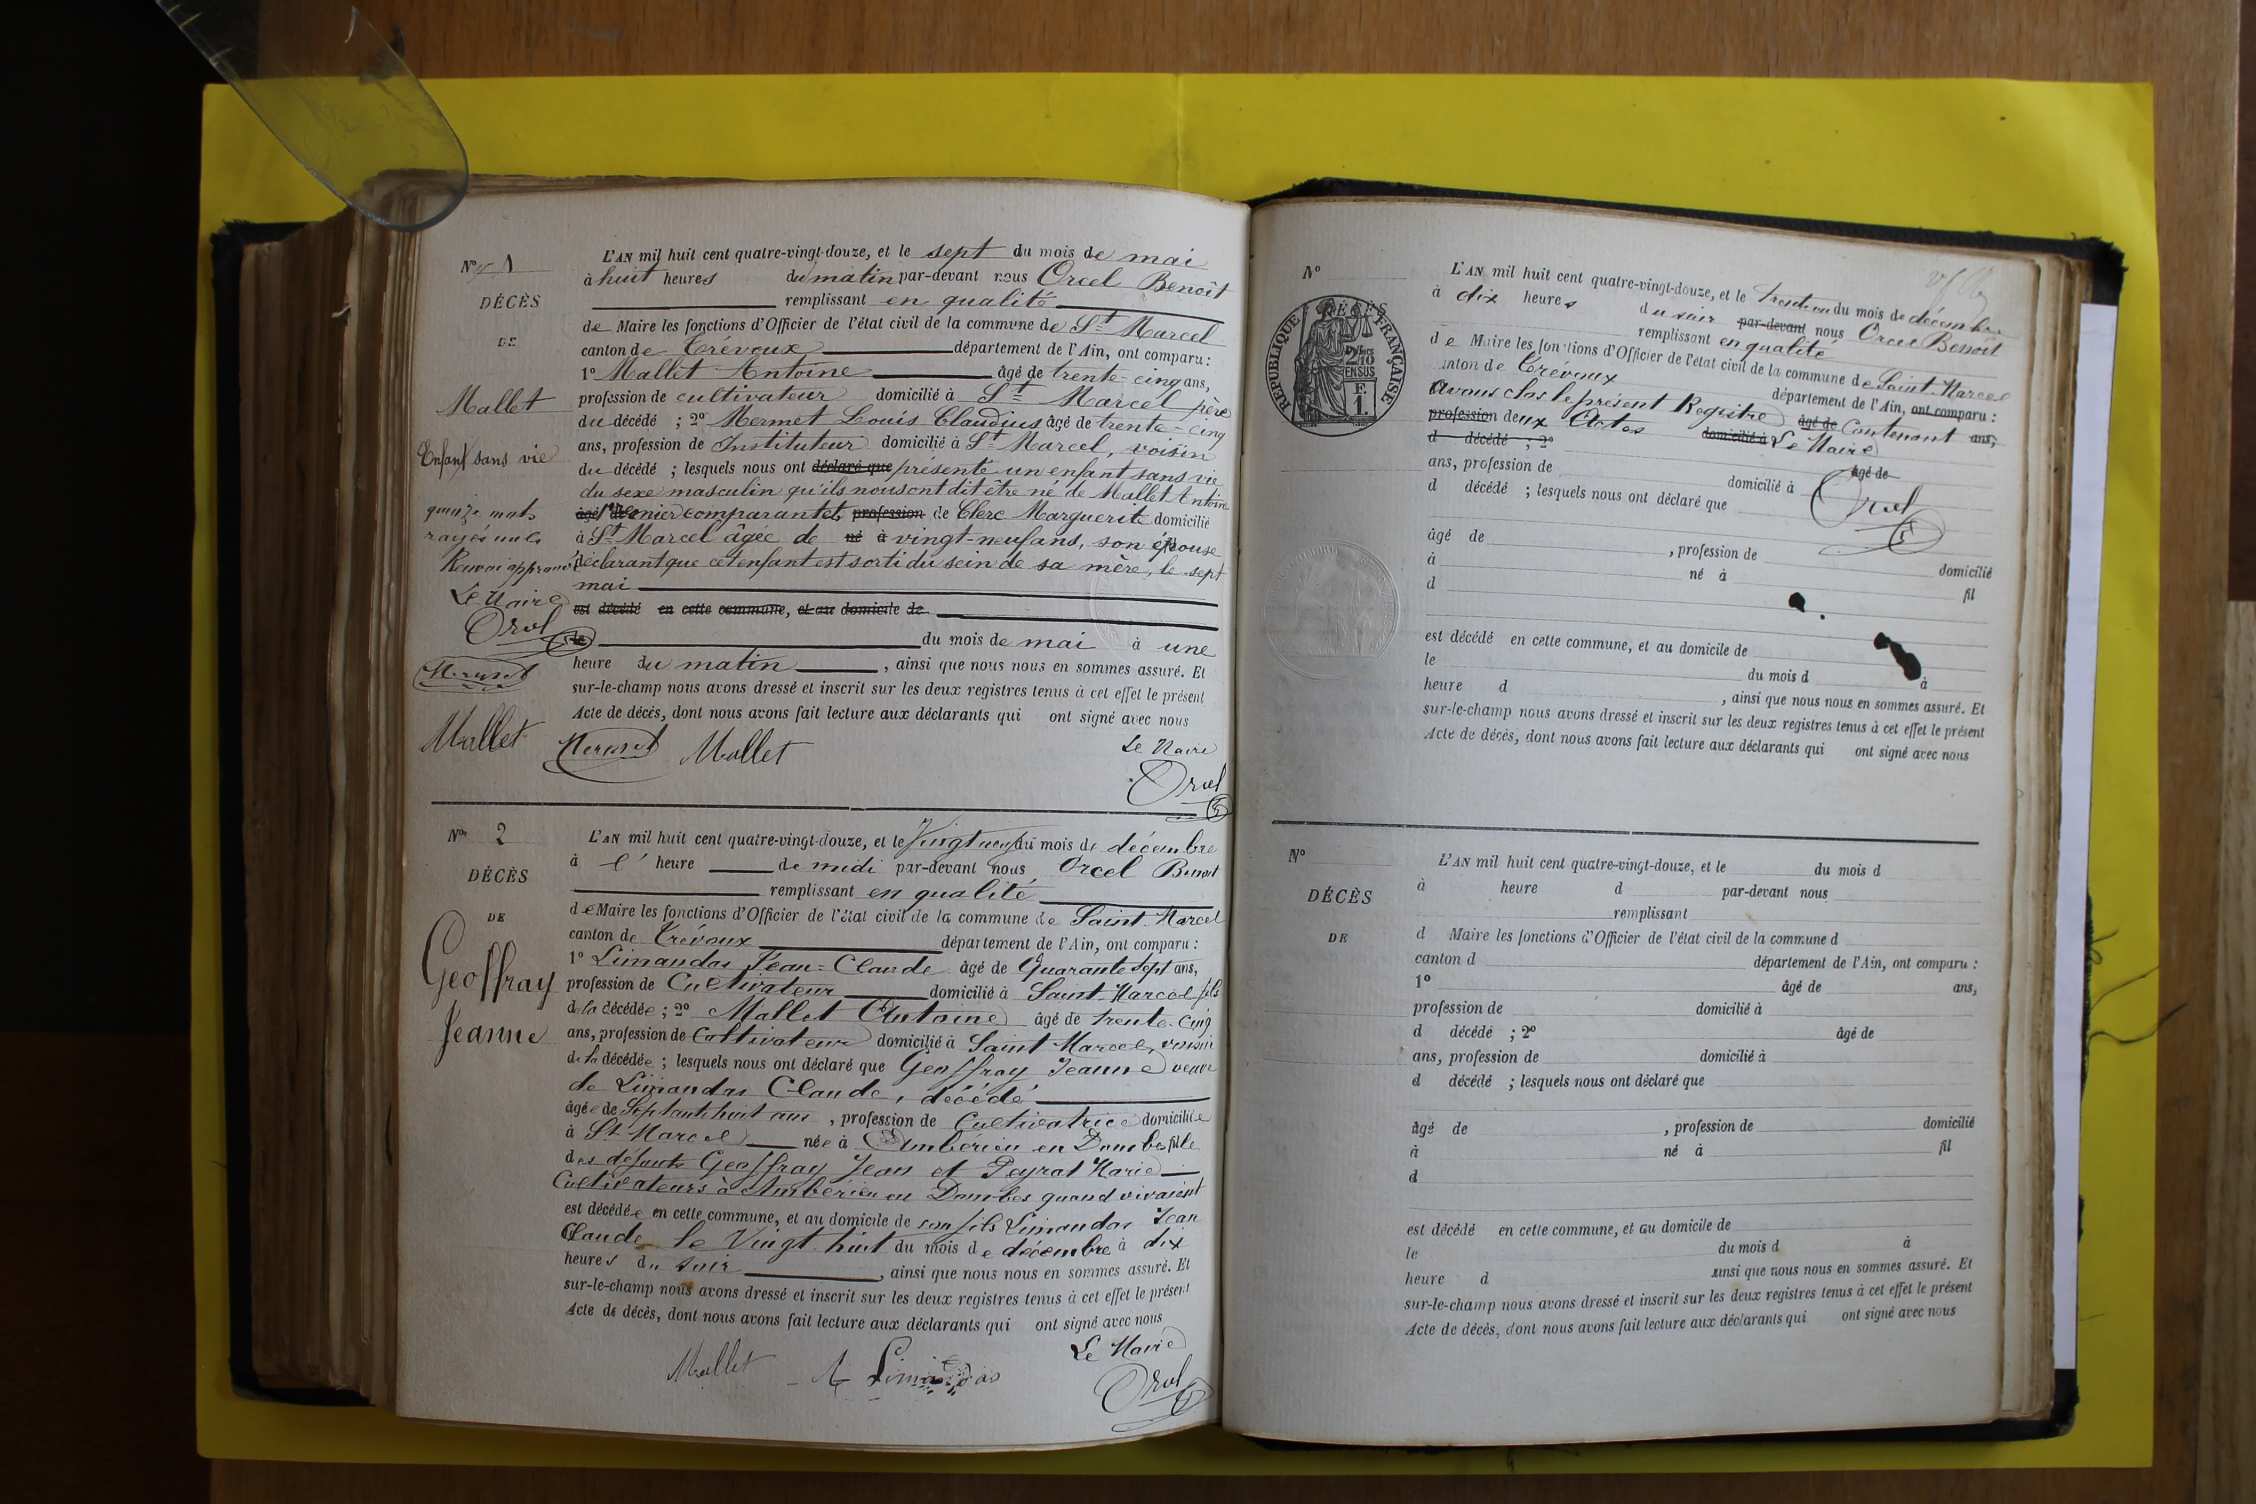 Nº 1
DÉCÈS
DE
Mallet
Enfant sans vie
quinze mots
rayés nuls
Renvoi approuvé
Le Maire
Orcel
Mermet
Mallet
L'AN mil huit cent quatre-vingt-douze, et le sept du mois de mai
à huit heures du matin par-devant nous Orcel Benoît
remplissant en qualité
de Maire les fonctions d'Officier de l'état civil de la commune de St Marcel
canton de Trévoux département de l'Ain, ont comparu :
1º Mallet Antoine âgé de trente-cinq ans,
profession de cultivateur domicilié à St Marcel père
du décédé ; 2º Mermet Louis Claudius âgé de trente-cinq
ans, profession de Instituteur domicilié à St Marcel, voisin
du décédé ; lesquels nous ont déclaré que présenté un enfant sans vie
du sexe masculin qu'ils nous ont dit être né de Mallet Antoine
âgé de comparant et profession de Clerc Marguerite domicilié
à St Marcel âgée de né à vingt-neuf ans, son épouse
déclarant que cet enfant est sorti du sein de sa mère, le sept
mai
est décédé en cette commune, et au domicile de
le du mois de mai à une
heure du matin , ainsi que nous nous en sommes assuré. Et
sur-le-champ nous avons dressé et inscrit sur les deux registres tenus à cet effet le présent
Acte de décès, dont nous avons fait lecture aux déclarants qui ont signé avec nous
Mermet Mallet Le Maire
Orcel
Nº 2
DÉCÈS
DE
Geoffray
Jeanne
L'AN mil huit cent quatre-vingt-douze, et le Vingt neuf du mois de décembre
à l' heure de midi par-devant nous Orcel Benoit
remplissant en qualité
de Maire les fonctions d'Officier de l'état civil de la commune de Saint-Marcel
canton de Trévoux département de l'Ain, ont comparu :
1º Limandas Jean-Claude âgé de Quarante sept ans,
profession de Cultivateur domicilié à Saint-Marcel fils
de la décédée ; 2º Mallet Antoine âgé de trente-cinq
ans, profession de Cultivateur domicilié à Saint Marcel, voisin
de la décédée ; lesquels nous ont déclaré que Geoffray Jeanne veuve
de Limandas Claude, décédé
âgée de Septante huit ans , profession de Cultivatrice domiciliée
à St Marcel née à Ambérieu en Dombes fille
des défunts Geoffray Jean et Peyrat Marie
Cultivateurs à Ambérieu en Dombes quand vivaient
est décédée en cette commune, et au domicile de son fils Limandas Jean
Claude le Vingt huit du mois de décembre à dix
heures du soir , ainsi que nous nous en sommes assuré. Et
sur-le-champ nous avons dressé et inscrit sur les deux registres tenus à cet effet le présent
Acte de décès, dont nous avons fait lecture aux déclarants qui ont signé avec nous
Le Maire
Mallet Limandas Orcel
Nº
DÉCÈS
RÉPUBLIQUE FRANÇAISE
2/10
EN SUS
F.
1.
L'AN mil huit cent quatre-vingt-douze, et le trente un du mois de décembre
à dix heures du soir par-devant nous Orcel Benoît
remplissant en qualité
de Maire les fonctions d'Officier de l'état civil de la commune de Saint-Marcel
canton de Trévoux département de l'Ain, ont comparu :
avons clos le présent Registre âgé de Contenant ans,
profession deux Actes domicilié à Le Maire
d décédé ; 2º âgé de
ans, profession de domicilié à Orcel
d décédé ; lesquels nous ont déclaré que
âgé de , profession de domicilié
à né à fil
d
est décédé en cette commune, et au domicile de
le du mois d à
heure d , ainsi que nous nous en sommes assuré. Et
sur-le-champ nous avons dressé et inscrit sur les deux registres tenus à cet effet le présent
Acte de décès, dont nous avons fait lecture aux déclarants qui ont signé avec nous
Nº
DÉCÈS
DE
L'AN mil huit cent quatre-vingt-douze, et le du mois d
à heure d par-devant nous
remplissant
d Maire les fonctions d'Officier de l'état civil de la commune d
canton d département de l'Ain, ont comparu :
1º âgé de ans,
profession de domicilié à
d décédé ; 2º âgé de
ans, profession de domicilié à
d décédé ; lesquels nous ont déclaré que
âgé de , profession de domicilié
à né à fil
d
est décédé en cette commune, et au domicile de
le du mois d à
heure d ainsi que nous nous en sommes assuré. Et
sur-le-champ nous avons dressé et inscrit sur les deux registres tenus à cet effet le présent
Acte de décès, dont nous avons fait lecture aux déclarants qui ont signé avec nous